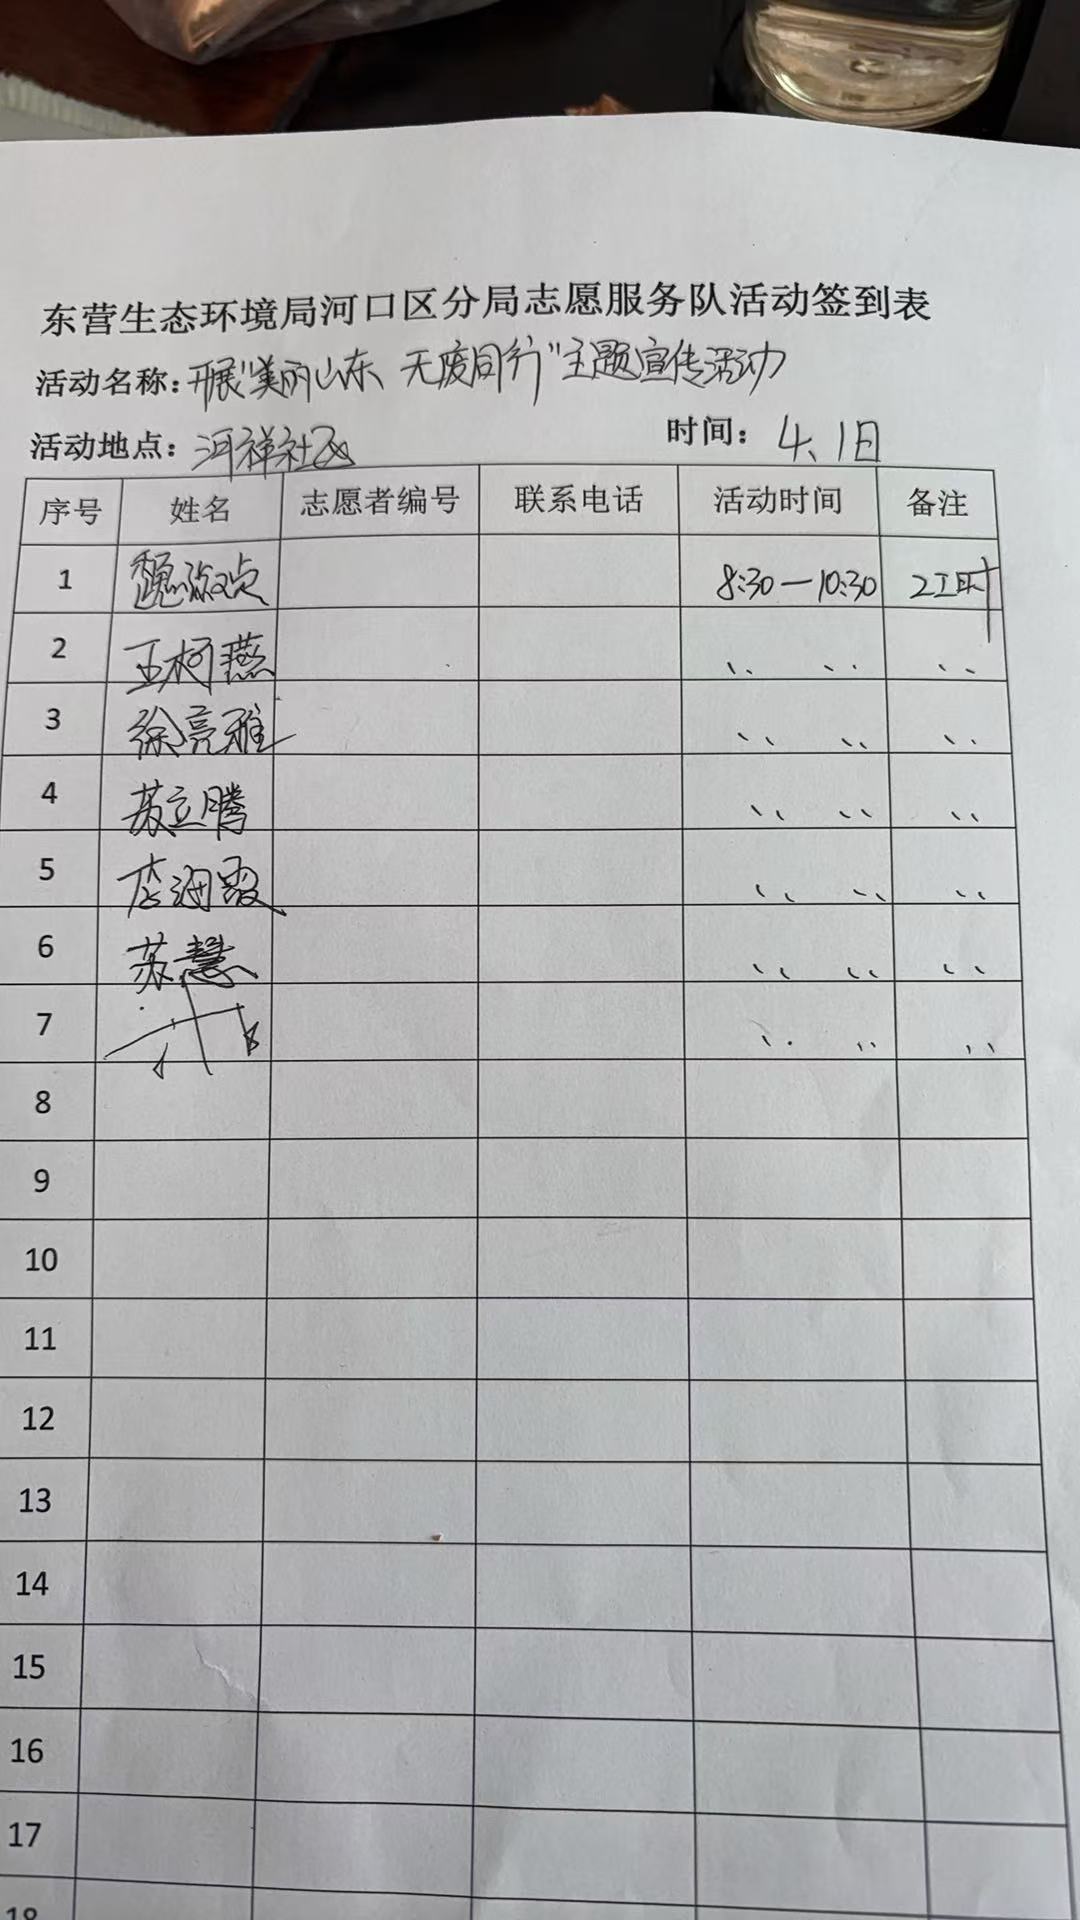 东营生态环境局河口区分局志愿服务队活动签到表
活动名称:开展"美丽山东、无废同行"主题宣传活动
活动地点:河祥社区 时间:4、1日
序号 姓名 志愿者编号 联系电话 活动时间 备注
1 魏淑贞 8:30—10:30 2工时
2 王柯燕 〃 〃 〃
3 徐亮雅 〃 〃 〃
4 苏立腾 〃 〃 〃
5 李海霞 〃 〃 〃
6 苏慧 〃 〃 〃
7 〃 〃 〃
8
9
10
11
12
13
14
15
16
17
18